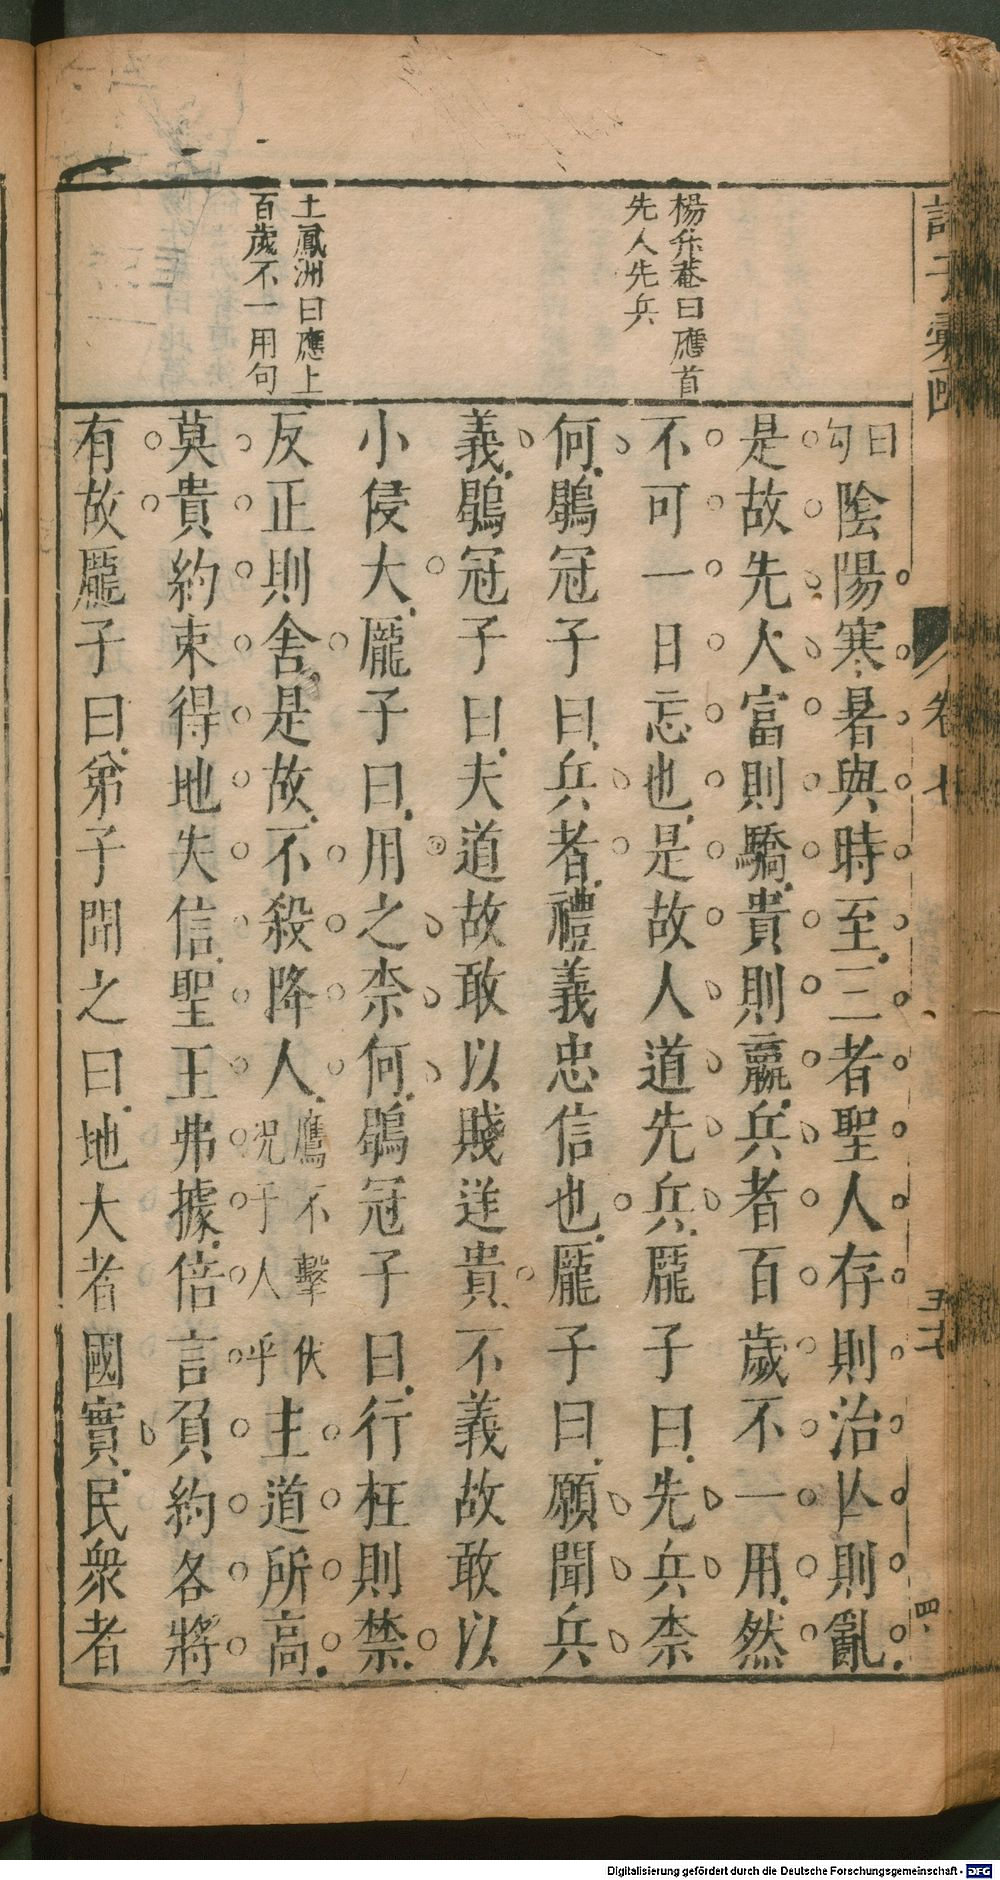 楊升菴曰應首
先人先兵
王鳳洲曰應上
百歲不一用句
曰勾陰陽寒暑與時至三者聖人存則治亾則亂
是故先人富則驕貴則贏兵者百歲不一用然
不可一日忘也是故人道先兵龐子曰先兵柰
何鶡冠子曰兵者禮義忠信也龐子曰願聞兵
義鶡冠子曰夫道故敢以賤逆貴不義故敢以
小侵大龐子曰用之柰何鶡冠子曰行枉則禁
反正則舍是故不殺降人鷹不擊伏況于人乎主道所高
莫貴約束得地失信聖王弗據倍言負約各將
有故龐子曰弟子聞之曰地大者國實民衆者
卷七
四
Digitalisierung gefördert durch die Deutsche Forschungsgemeinschaft - DFG